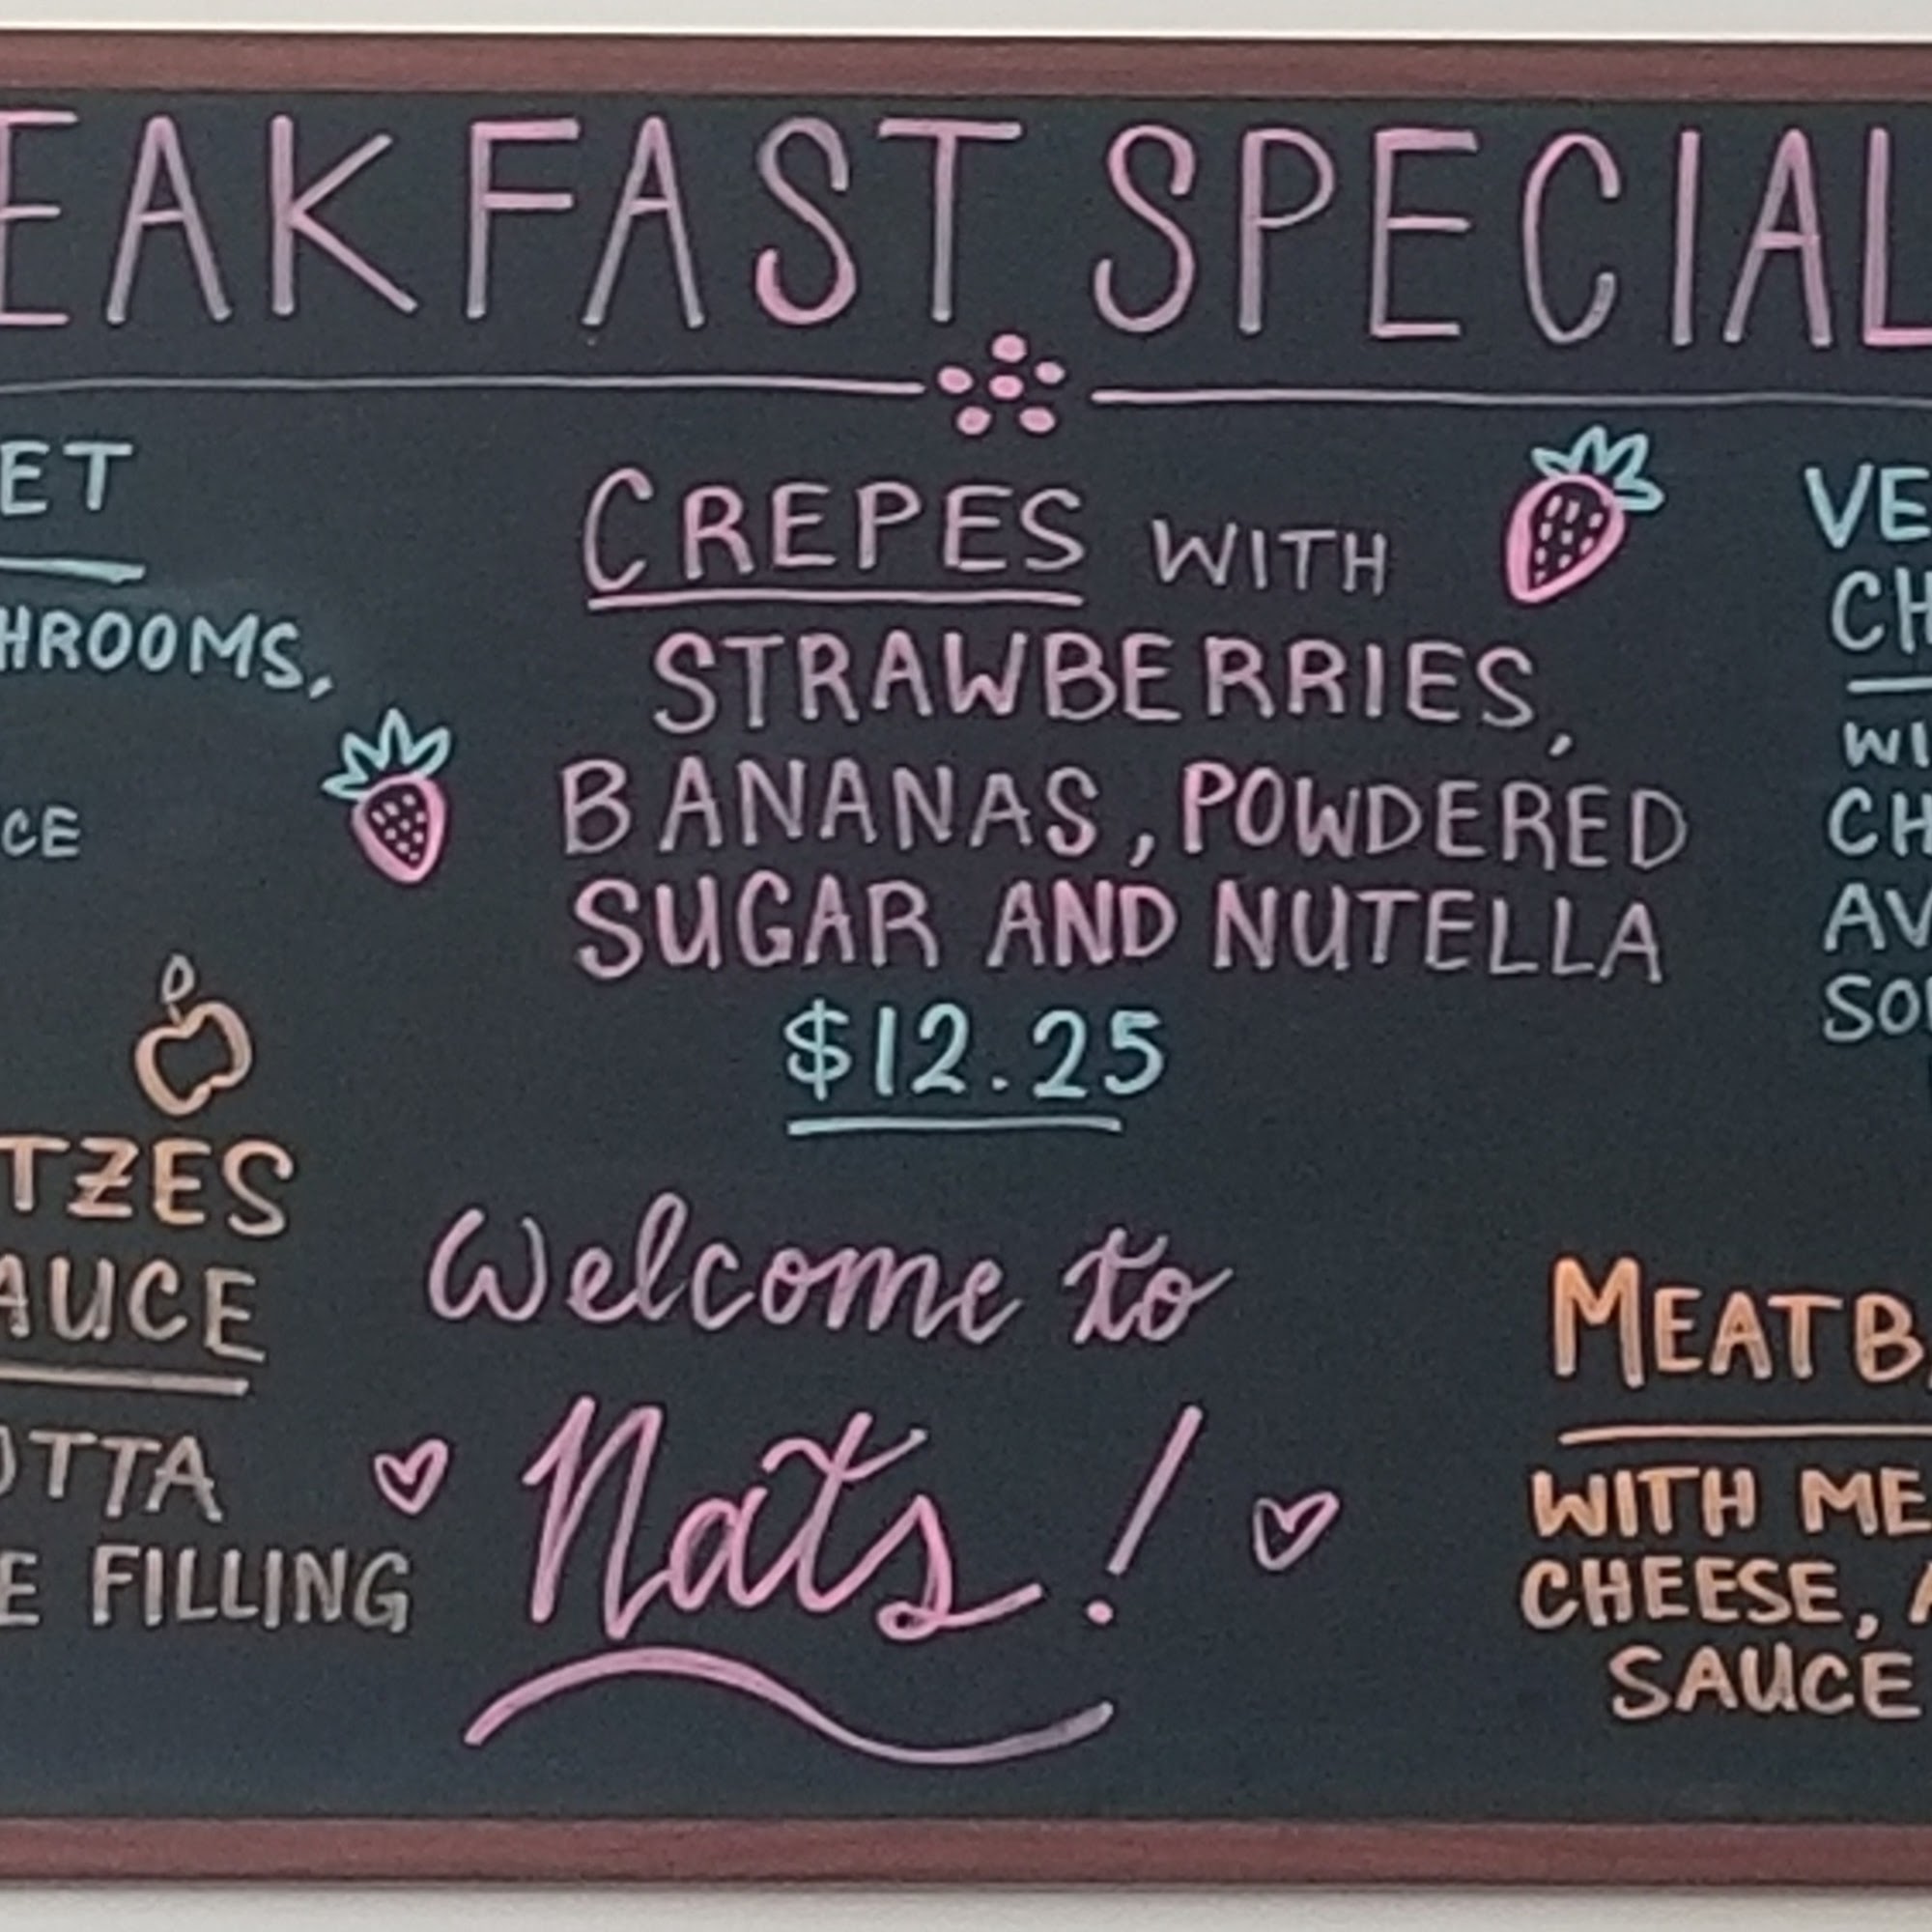 EAKFAST SPECIAL
ET
HROOMS,
CE
CREPES WITH
STRAWBERRIES,
BANANAS, POWDERED
SUGAR AND NUTELLA
$12.25
VE
CH
WI
CH
AV
SO
TZES
AUCE
OTTA
E FILLING
Welcome to
Nats!
MEATB
WITH ME
CHEESE, A
SAUCE